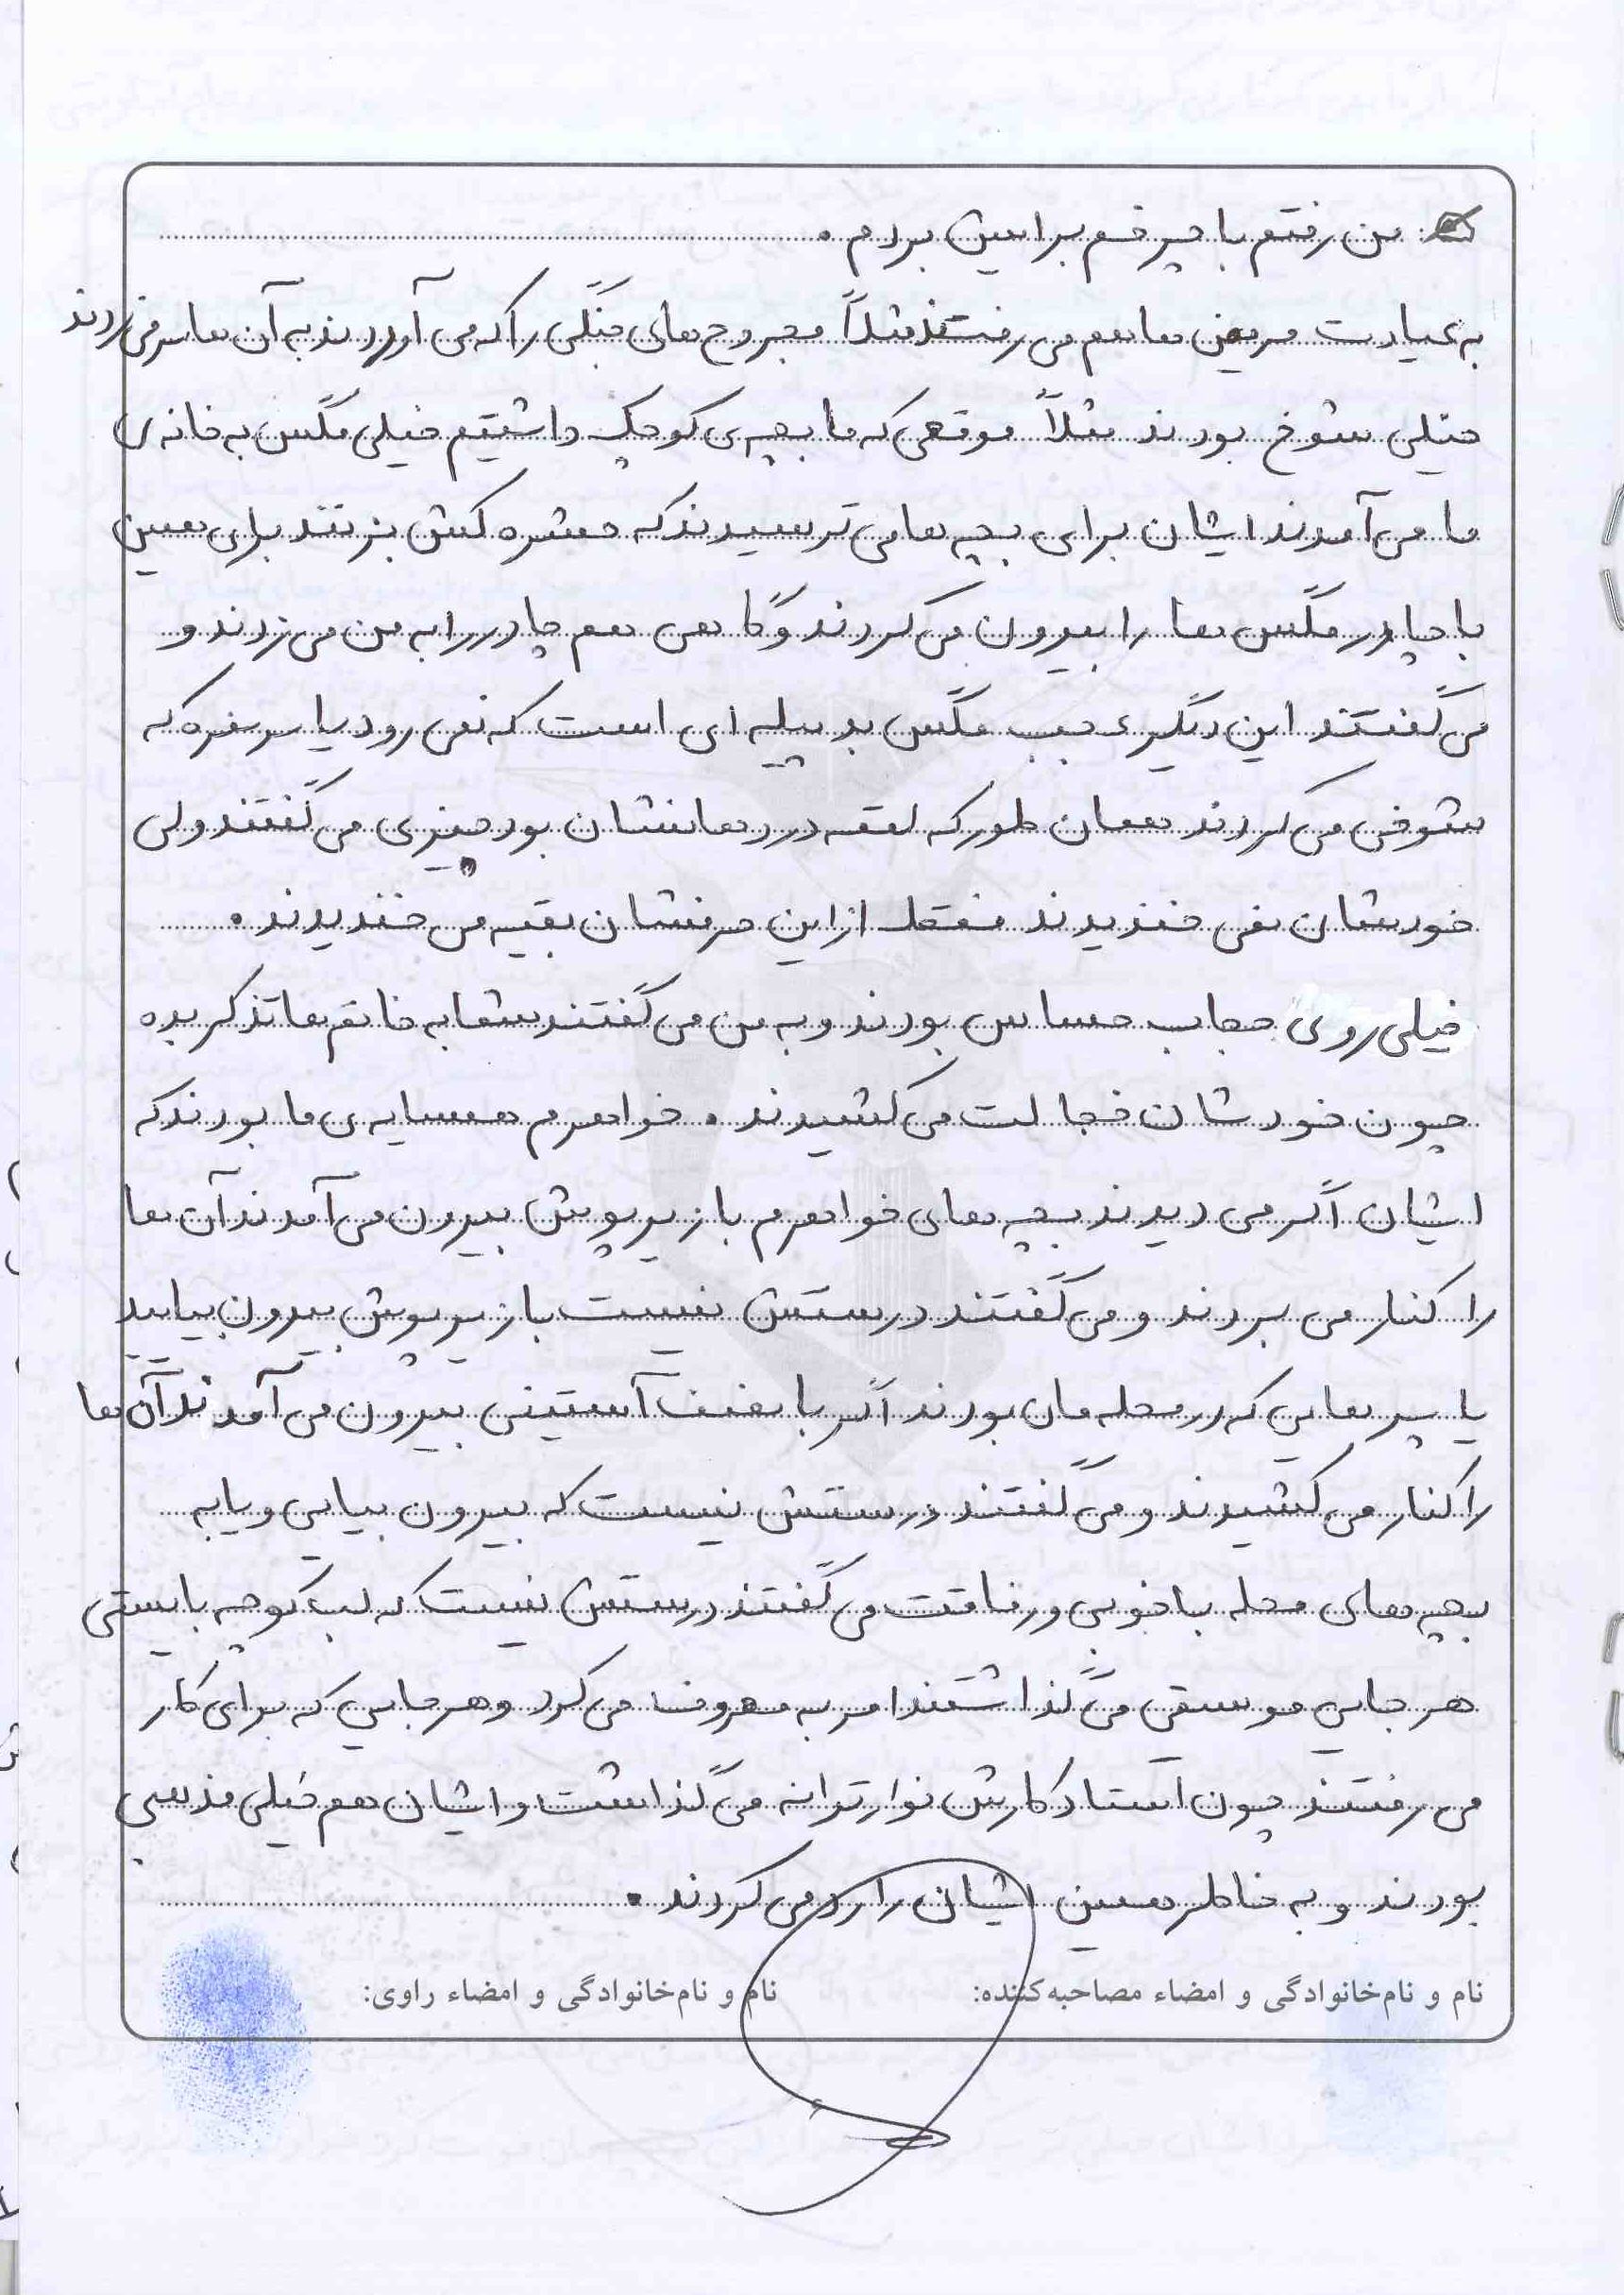 من رفتم با چرخم برایش بردم.
به عیادت مریض ها هم می رفتند مثلاً مجروح های جنگی را که می آوردند به آن ها سر می زدند
خیلی شوخ بودند مثلاً موقعی که ما بچه ی کوچک داشتیم خیلی مگس به خانه ی
ما می آمدند ایشان برای بچه ها می ترسیدند که حشره کش بزنند برای همین
با چادر مگس ها را بیرون می کردند و گاهی هم چادر را به من می زدند و
می گفتند این دیگر عجب مگس بد پیله ای است که نمی رود یا سر سفره که
شوخی می کردند همان طور که لقمه در دهانشان بود چیزی می گفتند ولی
خودشان نمی خندیدند منتها از این حرفشان بقیه می خندیدند.
خیلی روی حجاب حساس بودند و به من می گفتند شما به خانم ها تذکر بده
چون خودشان خجالت می کشیدند. خواهرم همسایه ی ما بودند که
ایشان اگر می دیدند بچه های خواهرم با زیرپوش بیرون می آمدند آن ها
را کنار می بردند و می گفتند درستش نیست با زیرپوش بیرون بیایید
یا پسرهایی که در محله مان بودند اگر با هفت آستینی بیرون می آمدند آن ها
را کنار می کشیدند و می گفتند درستش نیست که بیرون بیایی و یا به
بچه های محله با خوبی و رفاقت می گفتند درستش نیست که لب کوچه بایستی
هر جایی موسقی می گذاشتند امر به معروف می کرد و هر جایی که برای کار
می رفتند چون استاد کارش نوار ترانه می گذاشت و ایشان هم خیلی مذهبی
بودند و به خاطر همین ایشان را رد می کردند.
نام و نام‌خانوادگی و امضاء مصاحبه‌کننده: نام و نام‌خانوادگی و امضاء راوی: